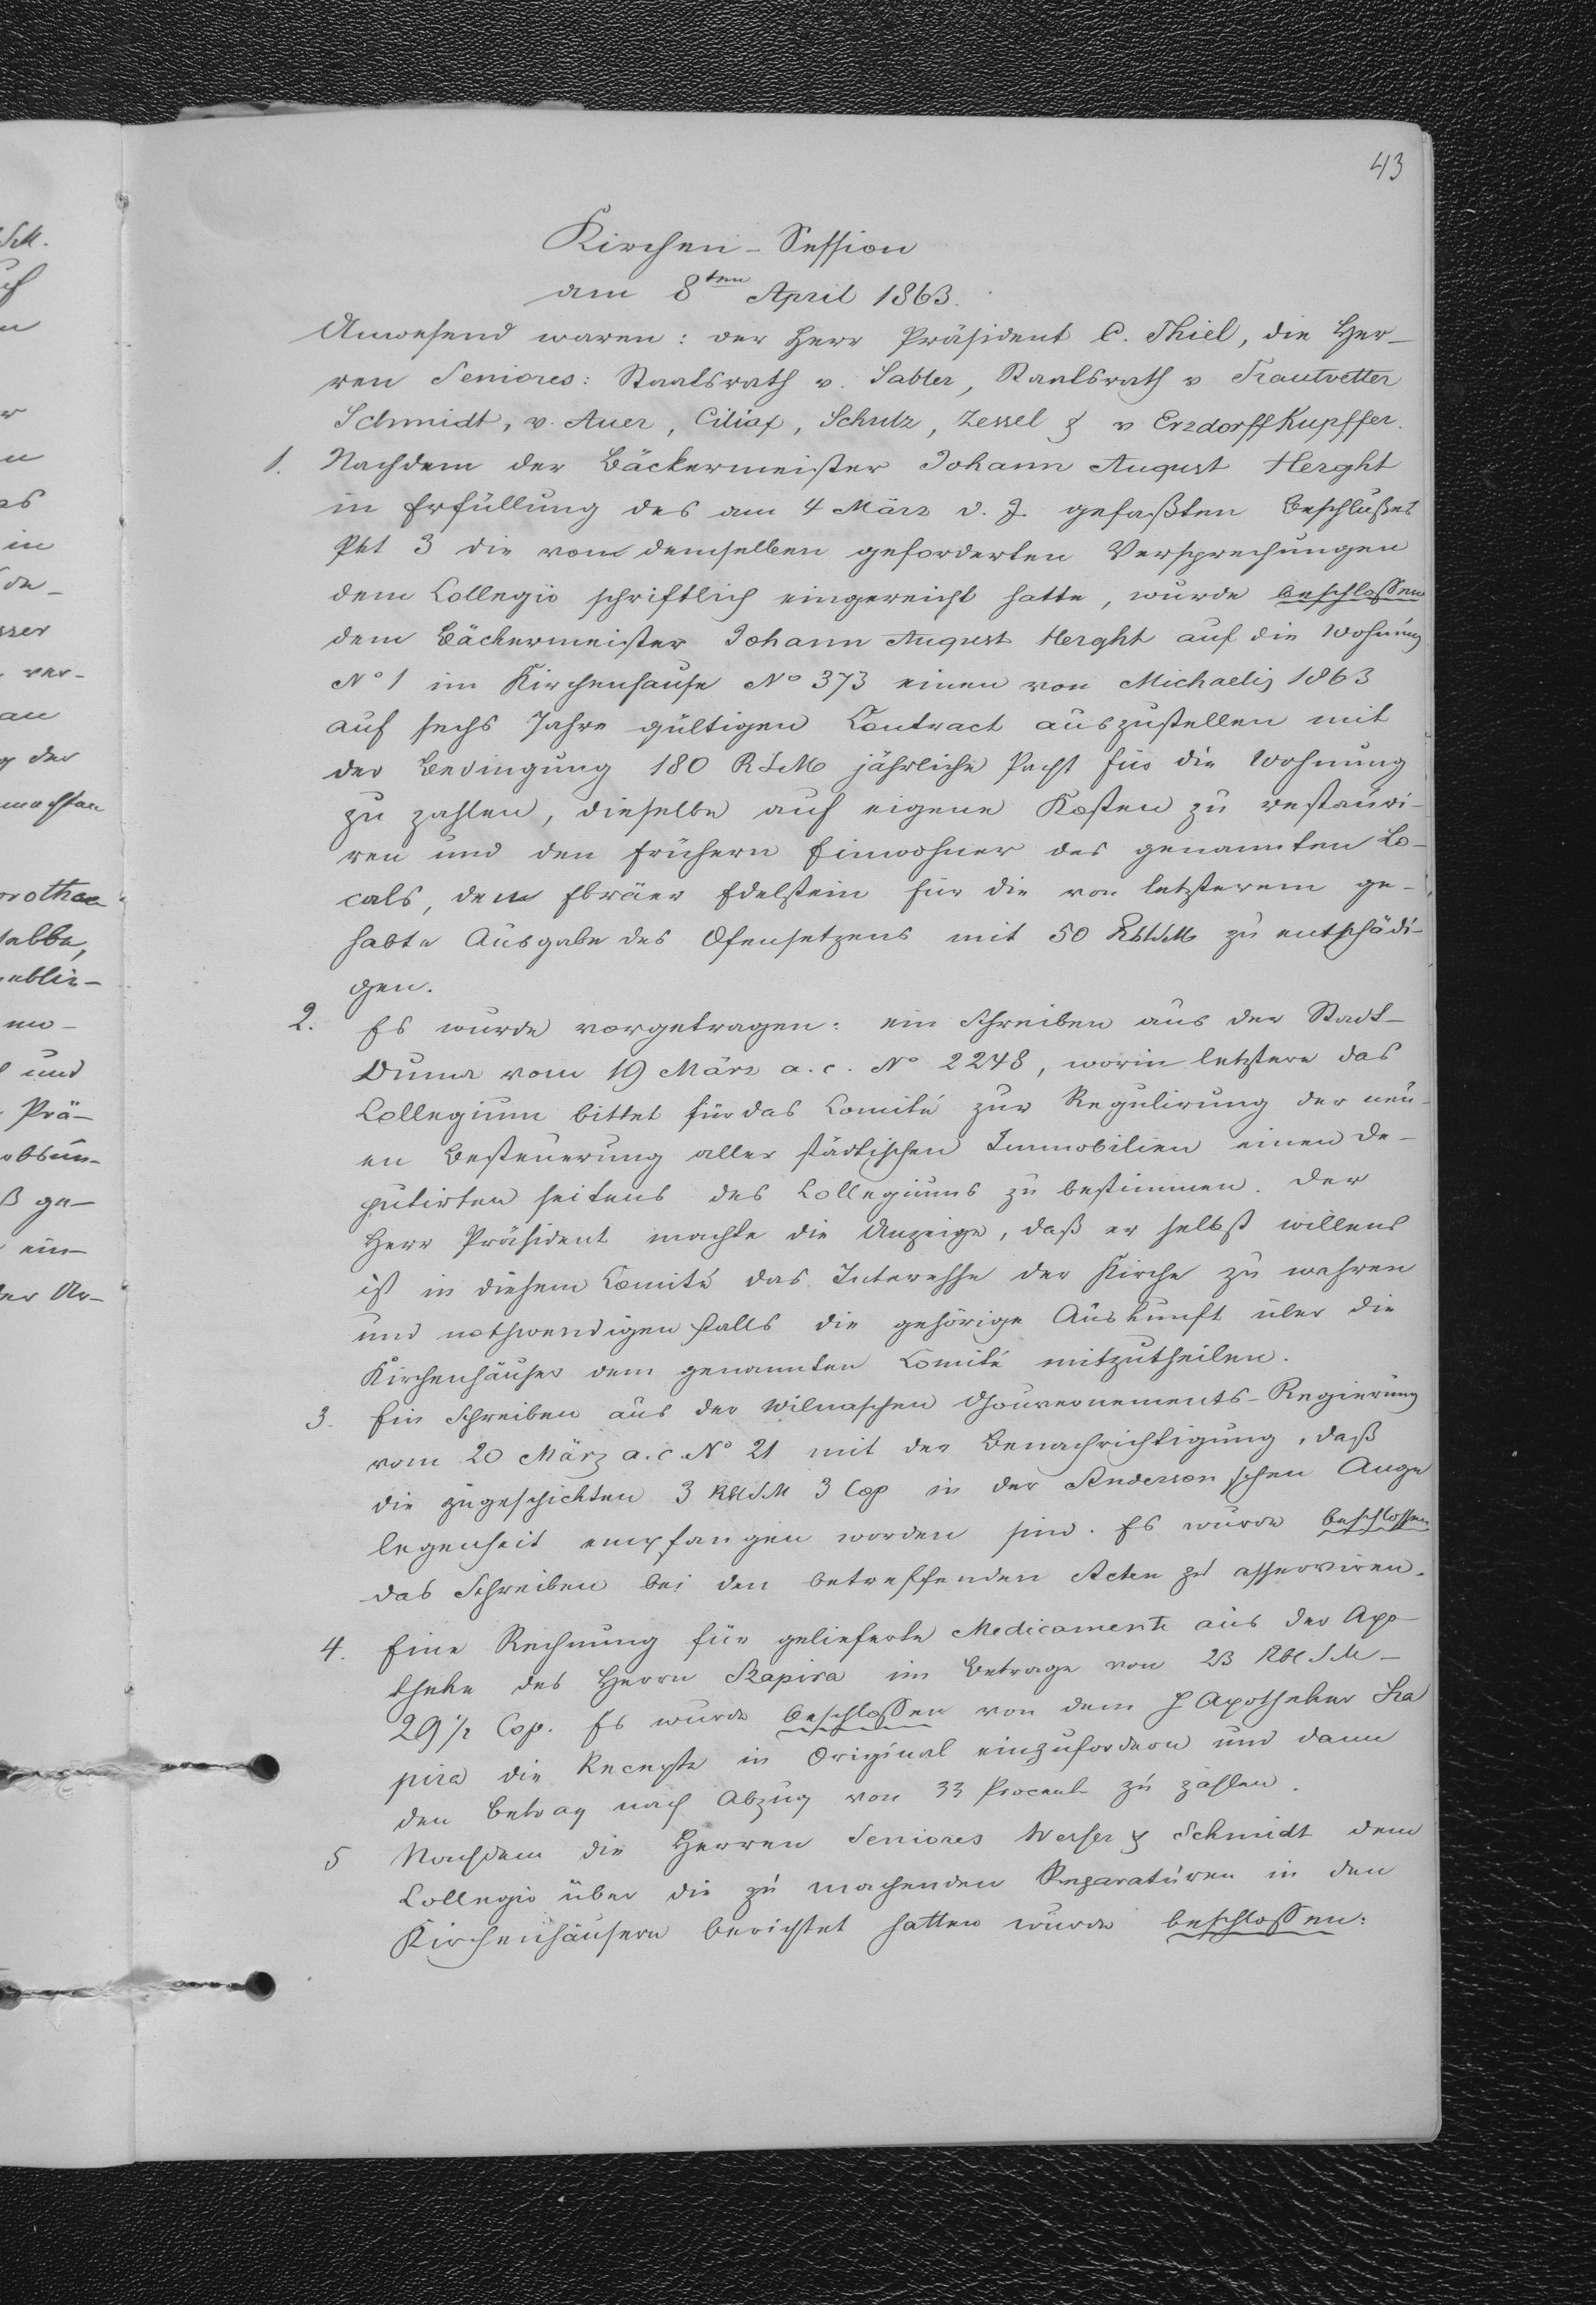 43
Kirchen-Session
am 8ten April 1863.
Anwesend waren: der Herr Präsident C. Thiel, die Her-
ren Seniores: Staatsrath v. Sabler, Staatsrath v Trautvetter
Schmidt, v. Auer, Ciliax, Schulz, Zessel & v Erzdorff Kupffer.
1. Nachdem der Bäckermeister Johann August Herght
in Erfüllung des am 4 März d. J. gefaßten Beschlußes
Pkt 3 die von demselben geforderten Versprechungen
dem Collegio schriftlich eingereicht hatte, wurde beschlossen
dem Bäckermeister Johann August Herght auf die Wohnung
No 1 im Kirchenhause No 373 einen von Michaelis 1863
auf sechs Jahre gültigen Contract auszustellen mit
der Bedingung 180 RSM jährliche Pacht für die Wohnung
zu zahlen, dieselbe auf eigene Kosten zu restauri-
ren und den frühern Einwohner des genannten Lo-
cals, den Ebräer Edelstein für die von letzterem ge-
habte Ausgabe des Ofensetzens mit 50 RblSM zu entschädi-
gen.
2. Es wurde vorgetragen: ein Schreiben aus der Stadt-
Duma vom 19 März a. c. No 2248, worin letztere das
Collegium bittet für das Comité zur Regulirung der neu-
en Besteuerung aller städtischen Immobilien einen De-
putirten seitens des Collegiums zu bestimmen. Der
Herr Präsident machte die Anzeige, daß er selbst willens
ist in diesem Comité das Interesse der Kirche zu wahren
und nothwendigen falls die gehörige Auskunft über die
Kirchenhäuser dem genannten Comité mitzutheilen.
3. Ein Schreiben aus der Wilnaschen Gouvernements-Regierung
vom 20 März a. c. No 21 mit der Benachrichtigung, daß
die zugeschickten 3 RblSM 3 Cop in der Anderson schen Ange
legenheit empfangen worden sind. Es wurde beschlossen
das Schreiben bei den betreffenden Acten zu asserviren.
4. Eine Rechnung für gelieferte Medicamente aus der Apo-
theke des Herrn Szapira im Betrage von 23 Rbl SM-
29 1/2 Cop. Es wurde beschlossen von dem H Apotheker Sza
pira die Recepte in Original einzufordern und dann
den Betrag nach Abzug von 33 Procent zu zahlen.
5 Nachdem die Herren Seniores & Schmidt dem
Collegio über die zu machenden Reparaturen in den
Kirchenhäusern berichtet hatten wurde beschlossen: